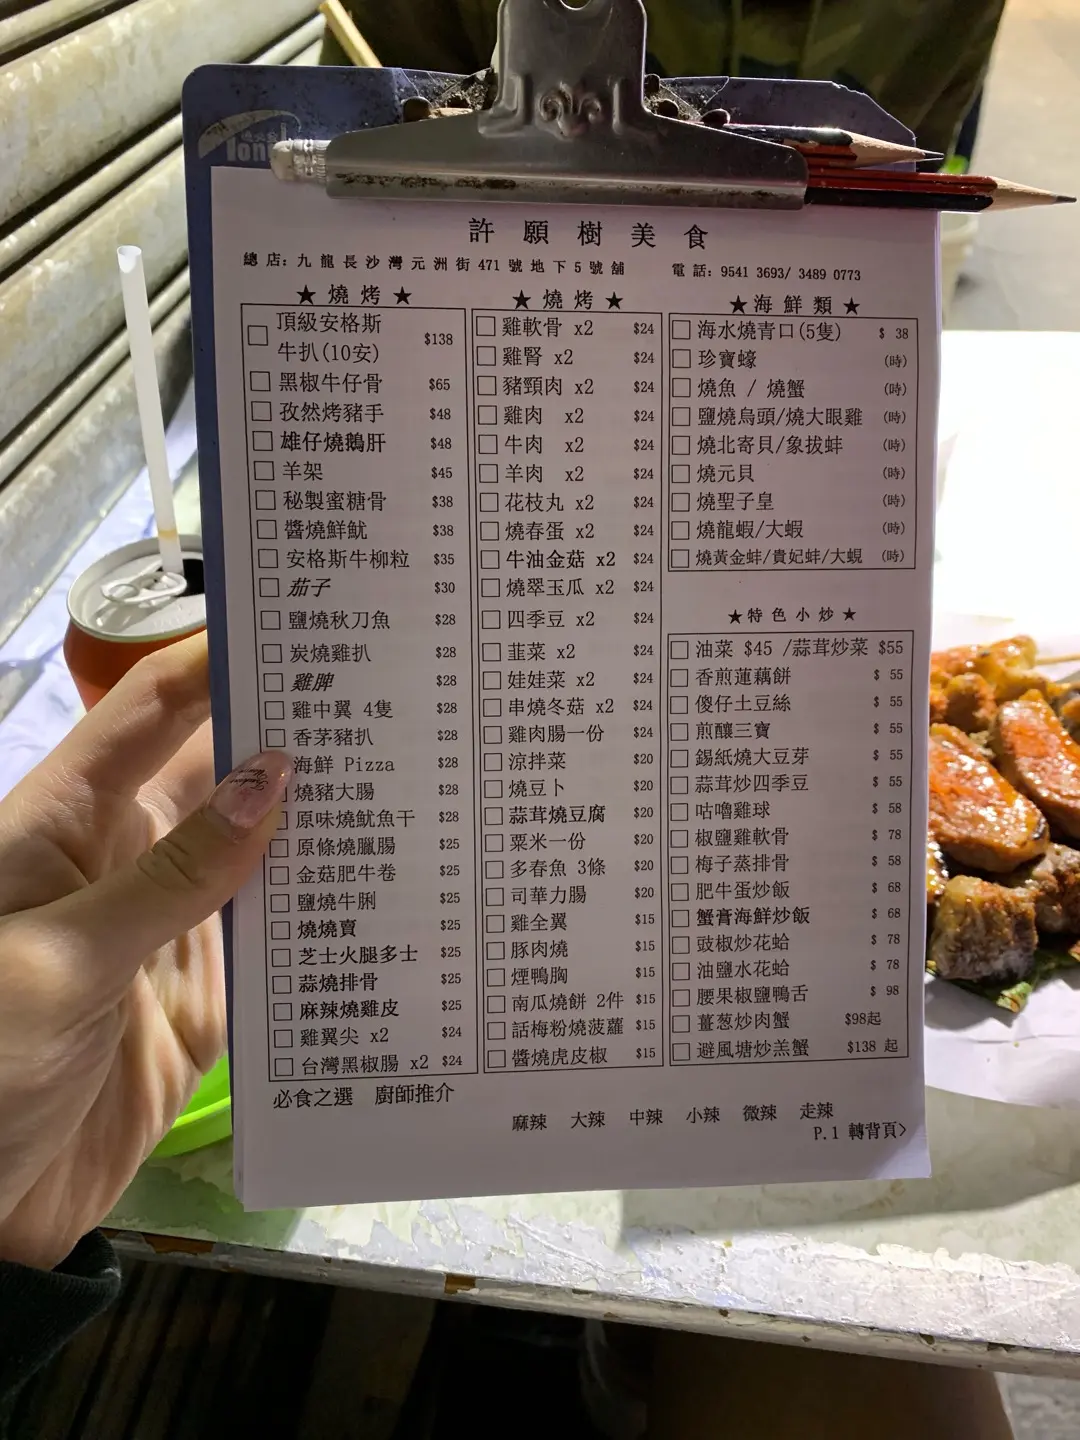 許願樹美食
總店: 九龍長沙灣元洲街 471 號地下 5 號舖 電話: 9541 3693/ 3489 0773
★ 燒烤 ★
頂級安格斯
牛扒(10安) $138
黑椒牛仔骨 $65
孜然烤豬手 $48
雄仔燒鵝肝 $48
羊架 $45
秘製蜜糖骨 $38
醬燒鮮魷 $38
安格斯牛柳粒 $35
茄子 $30
鹽燒秋刀魚 $28
炭燒雞扒 $28
雞脾 $28
雞中翼 4隻 $28
香茅豬扒 $28
海鮮 Pizza $28
燒豬大腸 $28
原味燒魷魚干 $28
原條燒臘腸 $25
金菇肥牛卷 $25
鹽燒牛脷 $25
燒燒賣 $25
芝士火腿多士 $25
蒜燒排骨 $25
麻辣燒雞皮 $25
雞翼尖 x2 $24
台灣黑椒腸 x2 $24
★ 燒烤 ★
雞軟骨 x2 $24
雞腎 x2 $24
豬頸肉 x2 $24
雞肉 x2 $24
牛肉 x2 $24
羊肉 x2 $24
花枝丸 x2 $24
燒春蛋 x2 $24
牛油金菇 x2 $24
燒翠玉瓜 x2 $24
四季豆 x2 $24
韭菜 x2 $24
娃娃菜 x2 $24
串燒冬菇 x2 $24
雞肉腸一份 $24
涼拌菜 $20
燒豆卜 $20
蒜茸燒豆腐 $20
粟米一份 $20
多春魚 3條 $20
司華力腸 $20
雞全翼 $15
豚肉燒 $15
煙鴨胸 $15
南瓜燒餅 2件 $15
話梅粉燒菠蘿 $15
醬燒虎皮椒 $15
★ 海鮮類 ★
海水燒青口(5隻) $ 38
珍寶蠔 (時)
燒魚 / 燒蟹 (時)
鹽燒烏頭/燒大眼雞 (時)
燒北寄貝/象拔蚌 (時)
燒元貝 (時)
燒聖子皇 (時)
燒龍蝦/大蝦 (時)
燒黃金蚌/貴妃蚌/大蜆 (時)
★ 特色小炒 ★
油菜 $45 /蒜茸炒菜 $55
香煎蓮藕餅 $ 55
傻仔土豆絲 $ 55
煎釀三寶 $ 55
錫紙燒大豆芽 $ 55
蒜茸炒四季豆 $ 55
咕嚕雞球 $ 58
椒鹽雞軟骨 $ 78
梅子蒸排骨 $ 58
肥牛蛋炒飯 $ 68
蟹膏海鮮炒飯 $ 68
豉椒炒花蛤 $ 78
油鹽水花蛤 $ 78
腰果椒鹽鴨舌 $ 98
薑葱炒肉蟹 $98起
避風塘炒羔蟹 $138 起
必食之選 廚師推介
麻辣 大辣 中辣 小辣 微辣 走辣
P.1 轉背頁>